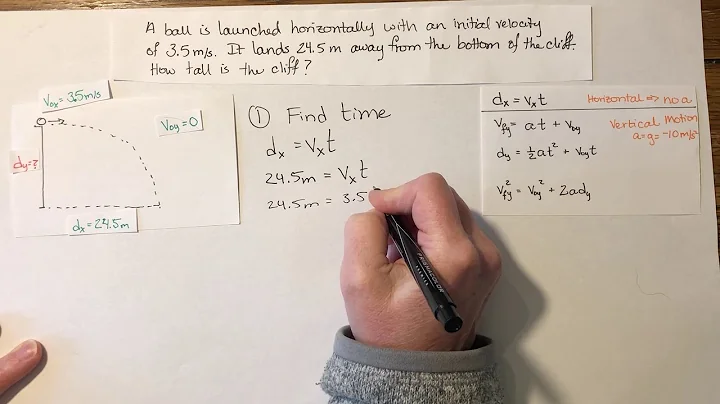 A ball is launched horizontally with an initial velocity
of 3.5 m/s. It lands 24.5 m away from the bottom of the cliff.
How tall is the cliff?
V₀ₓ = 3.5 m/s
V₀y = 0
dy = ?
dₓ = 24.5 m
① Find time
dₓ = Vₓt
24.5 m = Vₓt
24.5 m = 3.5
dₓ = Vₓt
Horizontal ⇒ no a
Vfy = at + V₀y
Vertical Motion
a = g = -10 m/s²
dy = ½at² + V₀yt
Vfy² = V₀y² + 2ady
PRISMACOLOR
PREMIER